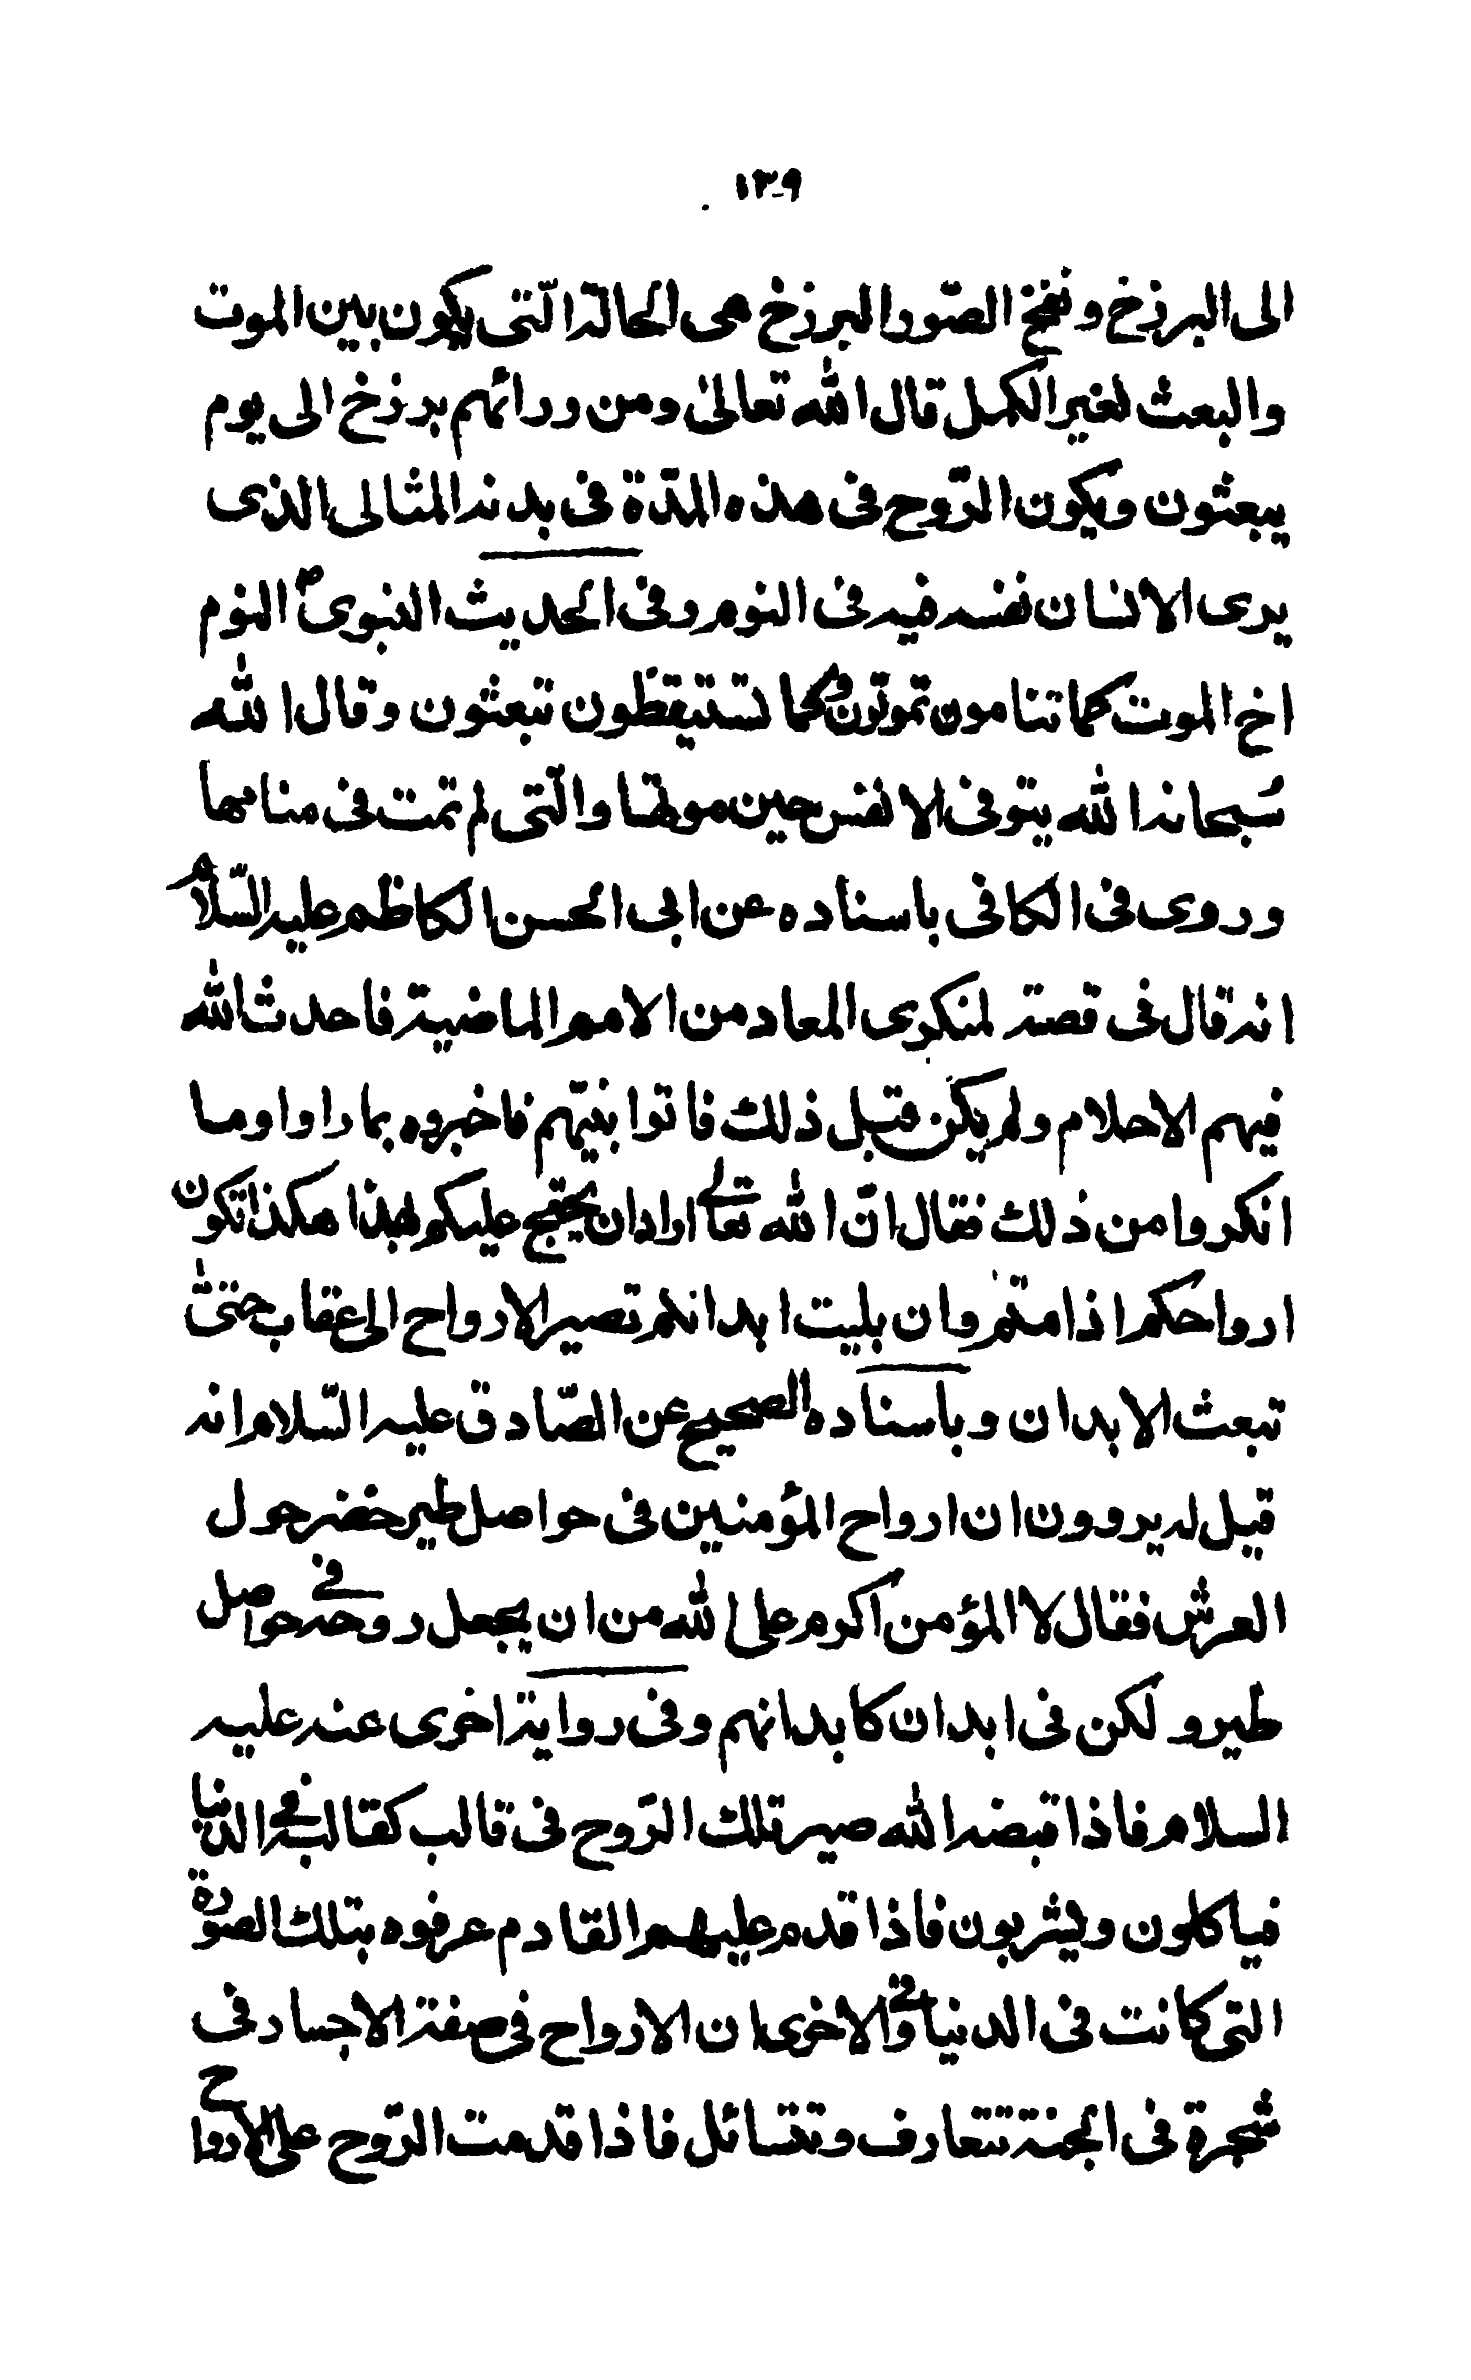 ١٣٩
الى البرزخ و نفخ الصّور البرزخ هى الحالة الّتى يكون بين الموت
والبعث لغير الكمل قال الله تعالىٰ ومن ورائهم برزخ الى يوم
يبعثون ويكون الرّوح فى هذه المدّة فى بدنه المثالى الذى
يرى الانسان نفسه فيه فى النوم وفى الحديث النبوى ص النوم
اخ الموت كما تنامون تموتون وكما تستيقظون تبعثون وقال الله
سُبحانه الله يتوفى الانفس حين موتها والّتى لم تمت فى منامها
وروى فى الكافى باسناده عن ابى الحسن الكاظم عليه السّلام
انه قال فى قصته لمنكرى المعاد من الامم الماضية فاحدث الله
فيهم الاحلام ولم يكن قبل ذلك فاتوا نبيّهم فاخبروه بما راوا وما
انكروا من ذلك فقال انّ الله تعالى اراد ان يحتج عليكم بهذا هكذا تكون
ارواحكم اذا متم وان بليت ابدانكم تصير الارواح الى عقاب حتىّ
تبعث الابدان وباسناده الصحيح عن الصّادق عليه السّلام انه
قيل له يروون ان ارواح المؤمنين فى حواصل طير خضر حول
العرش فقال لا المؤمن اكرم على الله من ان يجعل روحه فى حواصل
طير و لكن فى ابدان كابدانهم وفى رواية اخرى عنه عليه
السلام فاذا قبضه الله صير تلك الرّوح فى قالب كقالبه فى الدنيا
فياكلون ويشربون فاذا قدم عليهم القادم عرفوه بتلك الصورة
التى كانت فى الدنيا و فى الاخرى ان الارواح فى صفة الاجساد فى
شجرة فى الجنة تتعارف وتتسائل فاذا قدمت الرّوح على الارواح